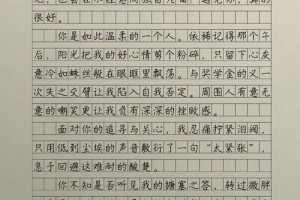 很好。
你是如此温柔的一个人。依稀记得那个午
后，阳光把我的好心情剪个粉碎，只留下心灰
意冷如蛛丝般在眼眶里飘荡。与奖学金的又一
次失之交臂让我陷入自我否定。周围人有意无
意的嘲笑更让我负有深深的挫败感。
面对你的追寻与关心，我忍痛拧紧泪阀，
只用低到尘埃的声音敷衍了一句“太紧张”，
急于回避这难耐的酸楚。
你不知是否听见我的搪塞之答，转过微胖